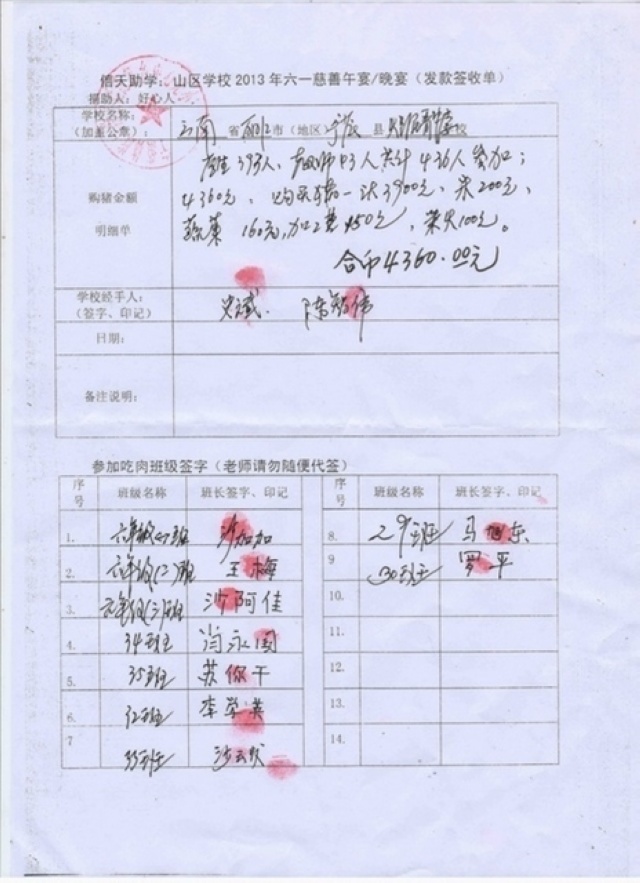 信天助学:山区学校2013年六一慈善午宴/晚宴(发款签收单)
捐助人:好心人
学校名称:
(加盖公章):
云南 省 丽江 市(地区) 县 校
学生393人、教师43人共计436人参加;
购猪金额
4360元,购买猪一头3900元,米200元;
明细单
蔬菜160元,加工费 元,柴火100元。
合币4360.00元
学校经手人:
(签字、印记)
陈智伟
日期:
备注说明:
参加吃肉班级签字(老师请勿随便代签)
序号 班级名称 班长签字、印记 序号 班级名称 班长签字、印记
1. 沙加加 8. 29班 马 东
2. 六年级(二)班 王梅 9 30班 罗平
3. 六年级(三)班 沙阿佳 10.
4. 34班 永国 11.
5. 35班 苏你干 12.
6. 32班 李学英 13.
7 33班 沙云 14.